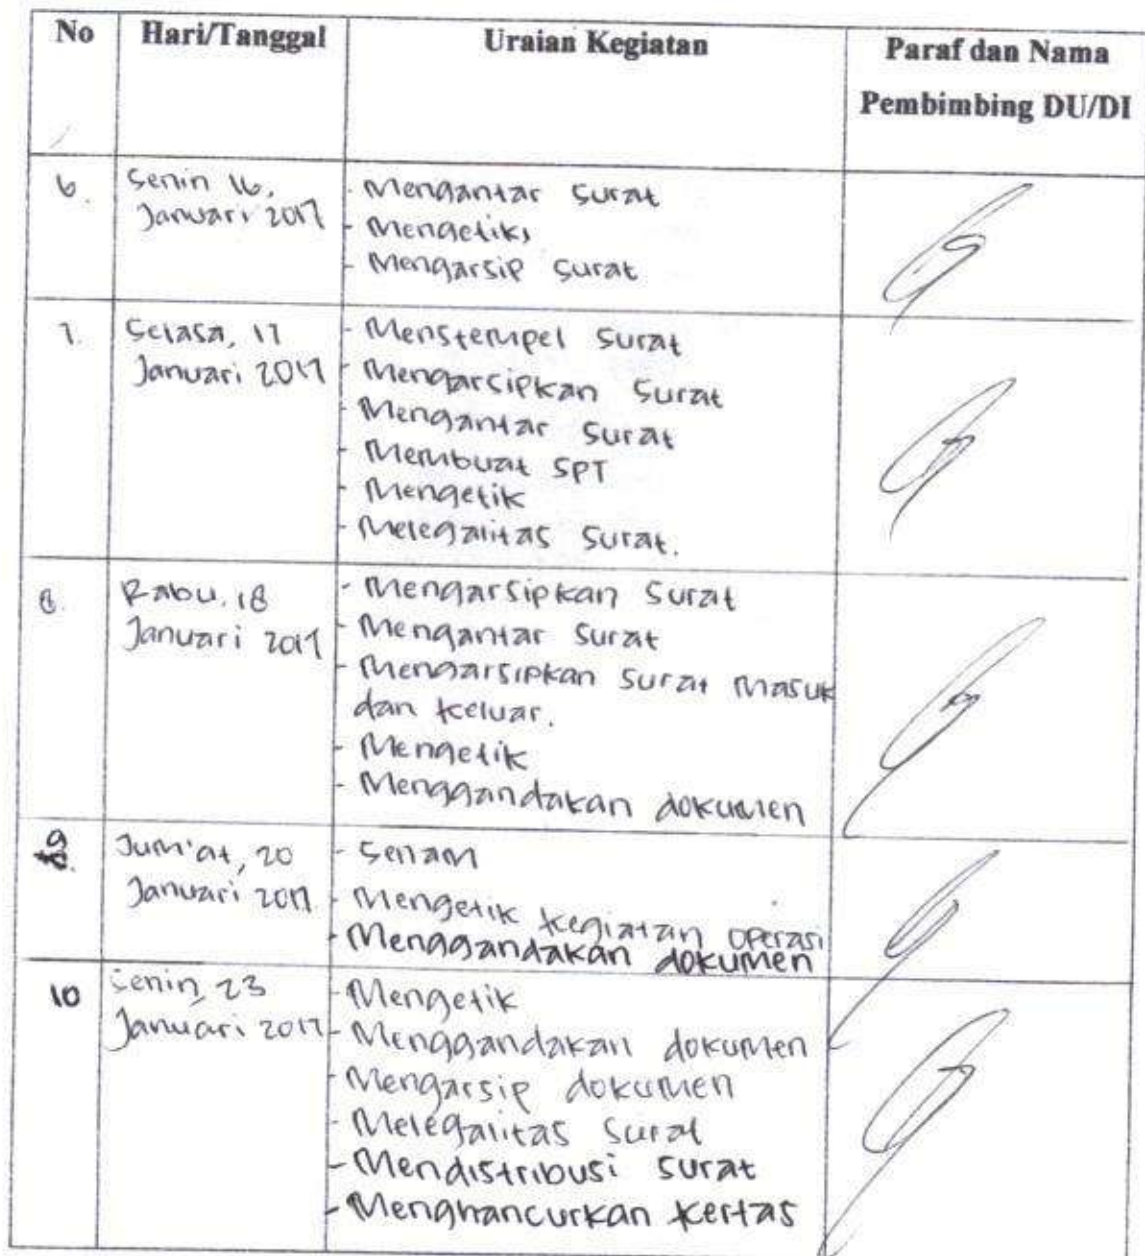 No Hari/Tanggal Uraian Kegiatan Paraf dan Nama
Pembimbing DU/DI
6. Senin 16, - Mengantar Surat
Januari 2017 - Mengetik,
- Mengarsip Surat
7. Selasa, 17 - Menstempel Surat
Januari 2017 - Mengarsipkan Surat
- Mengantar Surat
- Membuat SPT
- Mengetik
- Melegalitas Surat.
8. Rabu, 18 - Mengarsipkan Surat
Januari 2017 - Mengantar Surat
- Mengarsipkan Surat Masuk
dan keluar.
- Mengetik
- Menggandakan dokumen
9 Jum'at, 20 - Senam
Januari 2017 - Mengetik kegiatan operasi
- Menggandakan dokumen
10 Senin, 23 - Mengetik
Januari 2017 - Menggandakan dokumen
- Mengarsip dokumen
- Melegalitas Surat
- Mendistribusi surat
- Menghancurkan kertas